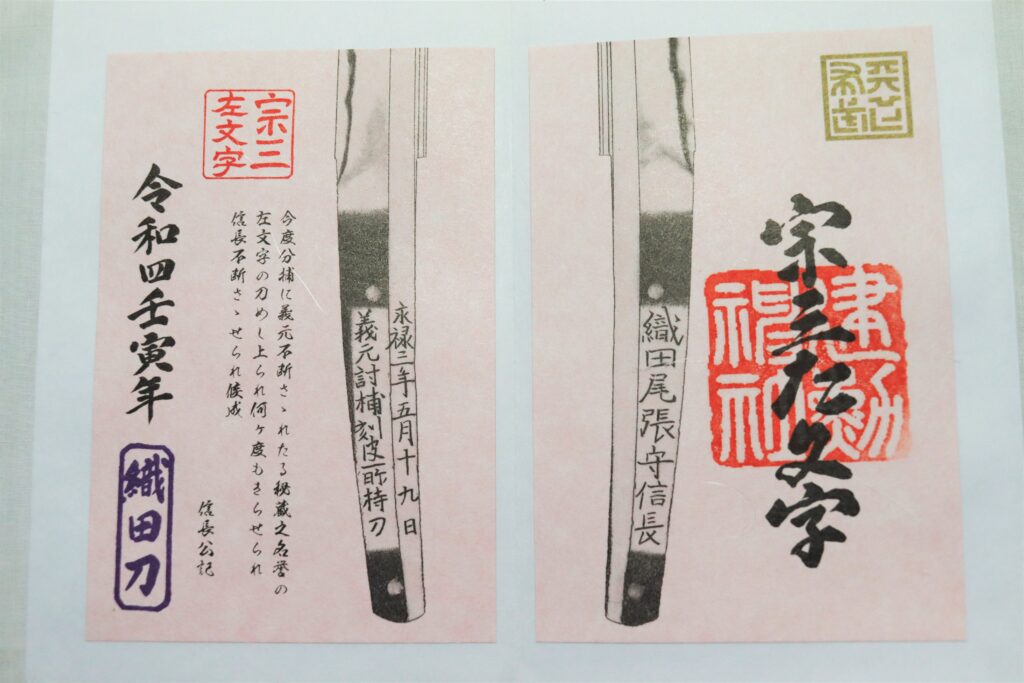 天下
布武
宗三左文字
建勲
神社
織田尾張守信長
永禄三年五月十九日
義元討捕刻彼所持刀
宗三
左文字
今度分捕に義元不断さゝれたる秘蔵之名誉の
左文字の刀めし上られ何ヶ度もきらせられ
信長不断さゝせられ候成
信長公記
令和四壬寅年
織田刀